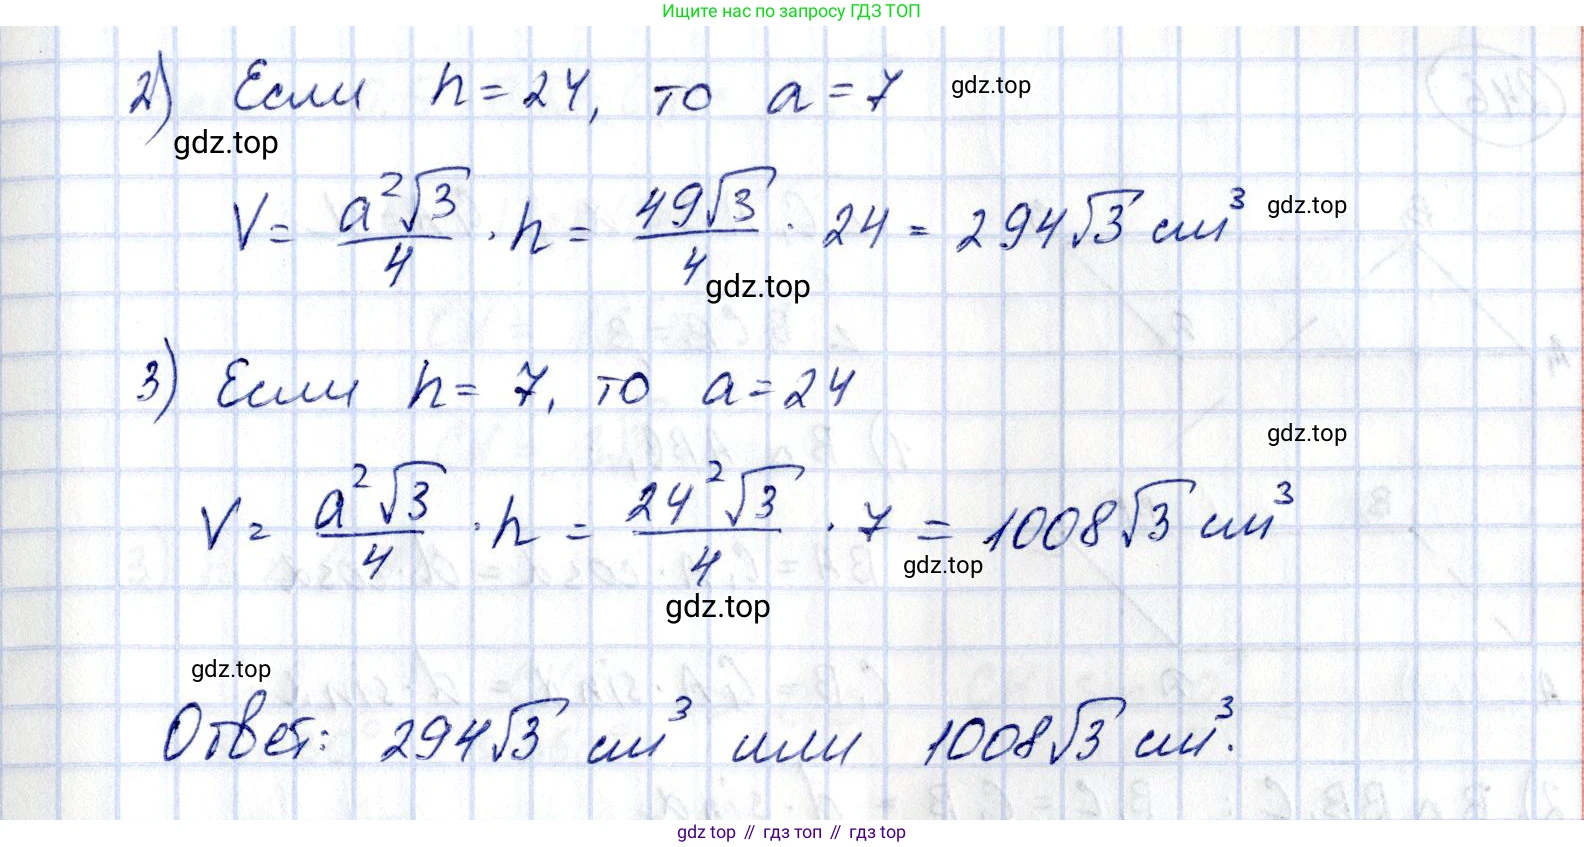 Ищите нас по запросу ГДЗ ТОП
2) Если h = 24, то a = 7 gdz.top
gdz.top
V = a²√3/4 · h = 49√3/4 · 24 = 294√3 см³ gdz.top
gdz.top
3) Если h = 7, то a = 24
gdz.top
V = a²√3/4 · h = 24²√3/4 · 7 = 1008√3 см³
gdz.top
gdz.top
gdz.top
Ответ: 294√3 см³ или 1008√3 см³.
gdz top // гдз топ // гдз top